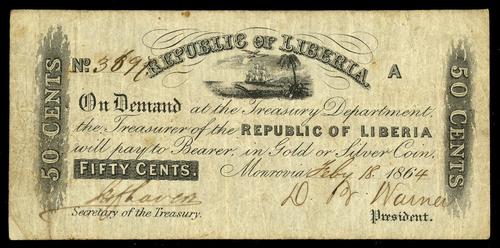 REPUBLIC OF LIBERIA
No. 3696 A
50 CENTS
50 CENTS
On Demand at the Treasury Department,
the Treasurer of the REPUBLIC OF LIBERIA
will pay to Bearer, in Gold or Silver Coin,
FIFTY CENTS.
Monrovia Feby 18, 1864
D. B. Warner
Secretary of the Treasury.
President.